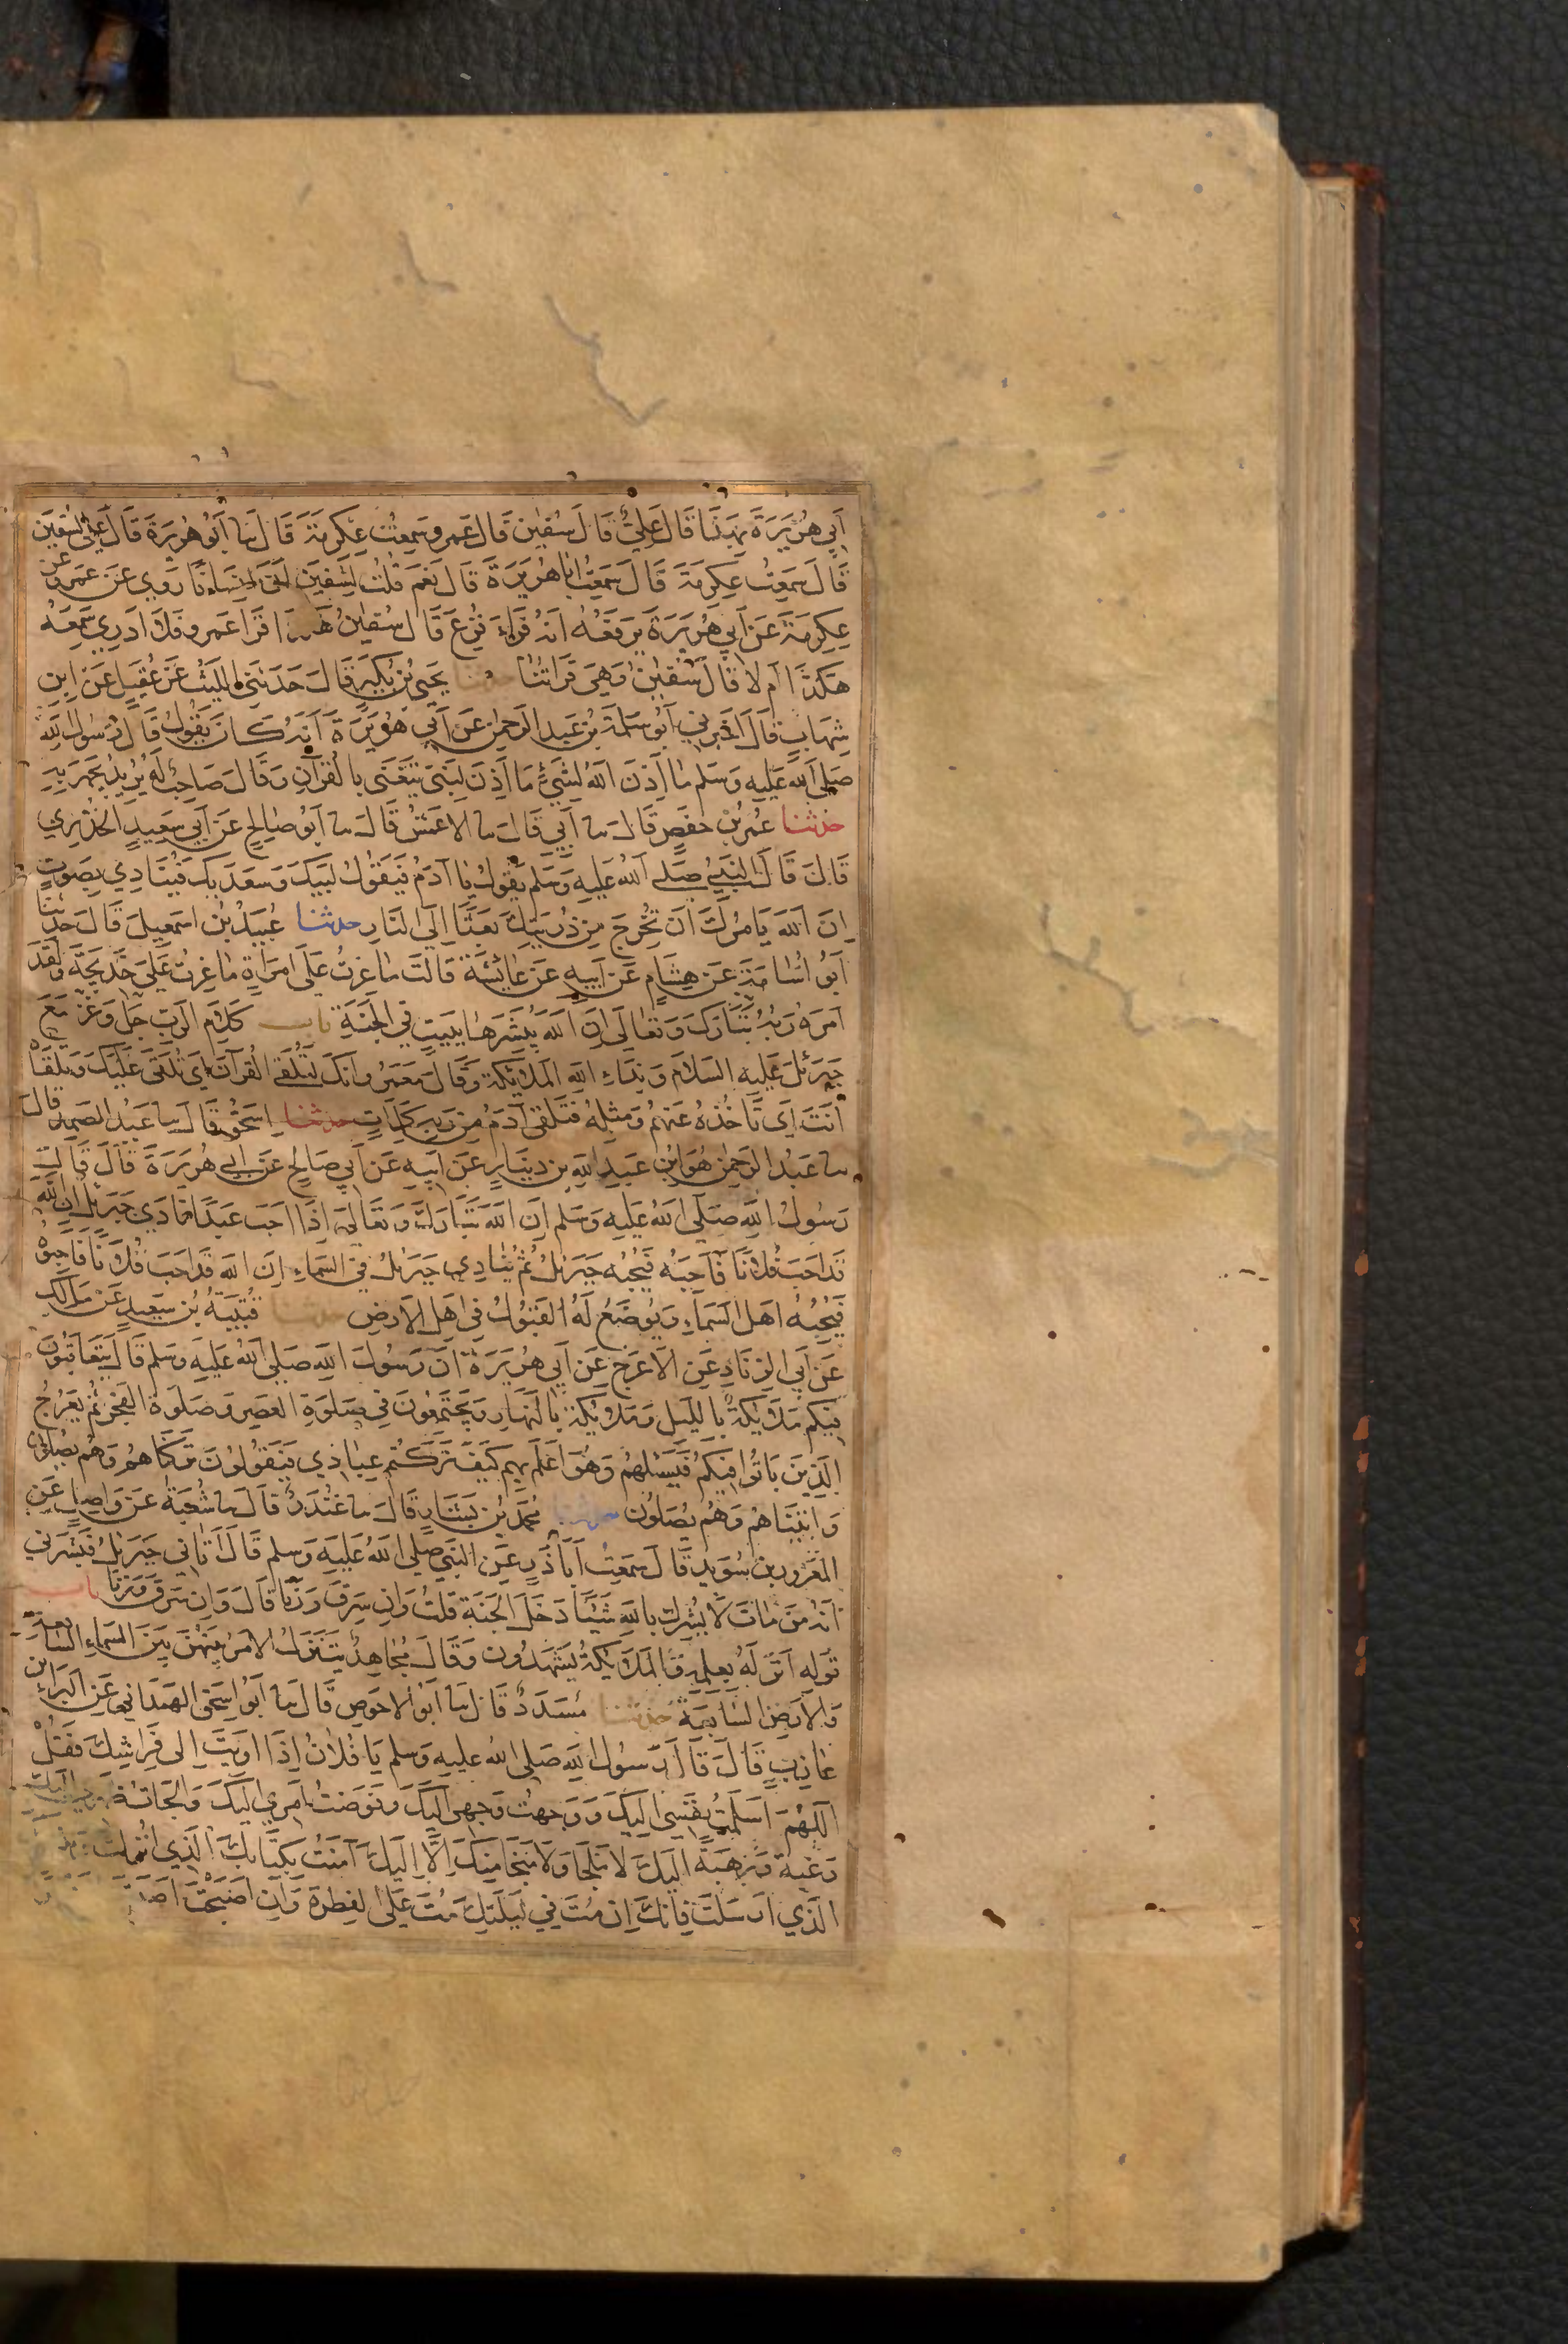 أَبِي هُرَيْرَةَ بِهَذَا قَالَ عَلِيٌّ قَالَ سُفْيٰن قَالَ عَمرو سَمِعْتُ عِكْرِمَةَ قَالَ نا أَبُو هُرَيْرَةَ قَالَ عَلِيٌّ لسُفْيٰن
قَالَ سَمِعْتُ عِكْرِمَةَ قَالَ سَمِعْتُ أبا هُرَيْرَةَ قَالَ نَعَمْ قُلْتُ لِسُفْيٰن إِنَّ إِنْسَانًا رَوٰي عَنْ عَمرو عن
عِكْرِمَةَ عَنْ أَبِي هُرَيْرَةَ يَرْفَعُهُ أَنَّهُ قَرَاءَ فُزِّعَ قَالَ سُفْيٰن هَكذا قَرَأَ عَمرو فَلَا أَدْرِي سَمِعَهُ
هكَذَا أم لَا قَالَ سُفْيٰن وَهِيَ قَراتُنَا حدثنا يَحْيَى بْنُ بُكَيْرٍ قَالَ حَدَّثَنِي اللَّيْثُ عَنْ عُقَيْلٍ عَنِ ابنِ
شِهَابٍ قَالَ أخبرني أَبُو سَلَمَةَ بْنُ عَبْدِ الرَّحْمٰنِ عَنْ أَبِي هُرَيْرَةَ أَنَّهُ كَانَ يَقُولُ قَالَ رَسُولُ اللَّهِ
صَلى اللَّهُ عَلَيْهِ وَسَلم مَا أَذِنَ اللَّهُ لِشَيْءٍ مَا أَذِنَ لِنَبِيّ يَتَغَنَّى بِالْقُرْآنِ وَقَالَ صَاحِبٌ لَهُ يُرِيدُ يَجْهَرُ بِهِ
حدثنا عُمَرُ بْنُ حَفْصٍ قَالَ نا أَبِي قَالَ نا الْأَعْمَشُ قَالَ نا أَبُو صَالِحٍ عَنْ أَبِي سَعِيدٍ الْخُدْرِي
قَالَ قَالَ النَّبِيُّ صَلى اللَّهُ عَلَيْهِ وَسَلم يَقُولُ يَا آدَمُ فَيَقُولُ لَبَّيْكَ وَسَعْدَيْكَ فَيُنَادِي بِصَوْتٍ
إِنَّ اللَّهَ يَامُرُكَ أَنْ تُخْرِجَ مِنْ ذُرِّيَّتِكَ بَعْثًا إِلَى النَّارِ حدثنا عُبَيْدُ بْنُ اسمَعِيلَ قَالَ حدثنا
أَبُو أُسَامَةَ عَنْ هِشَامٍ عَنْ أَبِيهِ عَنْ عَائِشَةَ قَالَتْ مَا غِرْتُ عَلَى امْرَأَةٍ مَا غِرْتُ عَلَى خَدِيجَةَ وَلَقَدْ
أَمَرَهُ رَبُّهُ تَبَارَكَ وَتَعَالَى أَنْ اللَّهَ يُبَشِّرَهَا بِبَيْتٍ فِي الْجَنَّةِ باب كَلَامِ الرَّبِّ جَلَّ وَعَزَّ مَعَ
جِبْرَئلَ عَلَيْهِ السَّلَامُ وَنِدَاءِ اللَّهِ الْمَلَائِكَةَ وَقَالَ مَعْمَرٌ وَإِنَّكَ لَتُلَقَّى الْقُرْآنَ أَيْ يُلْقَى عَلَيْكَ وَتَلَقَّاهُ
أَنْتَ أَيْ تَاخُذُهُ عَنْهُمْ وَمِثْلُهُ فَتَلَقَّى آدَمُ مِنْ رَبِّهِ كَلِمَاتٍ حدثنا إِسْحٰقُ قَالَ نا عَبْدُ الصَّمَدِ قال
نا عَبْدُ الرَّحْمٰنِ هُوَ ابْنُ عَبْدِ اللَّهِ بْنِ دِينَارٍ عَنْ أَبِيهِ عَنْ أَبِي صَالِحٍ عَنْ أَبِي هُرَيْرَةَ قَالَ قَالَ
رَسُولُ اللَّهِ صَلَّى اللَّهُ عَلَيْهِ وَسَلم إِنَّ اللَّهَ تَبَارَكَ وَتَعَالَى إِذَا أَحَبَّ عَبْدًا نَادٰي جِبْرَئلَ إِنَّ اللَّهَ
قَدْ أَحَبَّ فُلَانًا فَأَحِبَّهُ فَيُحِبُّهُ جِبْرَئلُ ثُمَّ يُنَادِي جِبْرَئلُ فِي السَّمَاءِ إِنَّ اللَّهَ قَدْ أَحَبَّ فُلَانًا فَأَحِبُّوهُ
فَيُحِبُّهُ أَهْلُ السَّمَاءِ وَيُوضَعُ لَهُ الْقَبُولُ فِي أَهْلِ الْأَرْضِ حدثنا قُتَيْبَةُ بْنُ سَعِيدٍ عَنْ مَالِكٍ
عَنْ أَبِي الزِّنَادِ عَنِ الْأَعْرَجِ عَنْ أَبِي هُرَيْرَةَ أَنَّ رَسُولَ اللَّهِ صَلى اللَّهُ عَلَيْهِ وَسَلم قَالَ يَتَعَاقَبُونَ
فِيكُمْ مَلَائِكَةٌ بِاللَّيْلِ وَمَلَائِكَةٌ بِالنَّهَارِ وَيَجْتَمِعُونَ فِي صَلَوةِ الْعَصْرِ وَصَلَوةِ الْفَجْرِ ثُمَّ يَعْرُجُ
الَّذِينَ بَاتُوا فِيكُمْ فَيَسْئَلُهُمْ وَهُوَ أَعْلَمُ بِهِمْ كَيْفَ تَرَكْتُمْ عِبَاذِي فَيَقُولُونَ تَرَكْنَاهُمْ وَهُمْ يُصَلُّونَ
وَأَتَيْنَاهُمْ وَهُمْ يُصَلُّونَ حدثنا مُحَمَّدُ بْنُ بَشَّارٍ قَالَ نا غُنْدَرٌ قَالَ نا شُعْبَةُ عَنْ وَاصِلٍ عَنِ
الْمَعْرُورِ بن سُوَيْدٍ قَالَ سَمِعْتُ أَبَا ذَرٍّ عَنِ النَّبِيِّ صَلى اللَّهُ عَلَيْهِ وَسَلم قَالَ أَتَانِي جِبْرَئلُ فَبَشَّرَنِي
أَنَّهُ مَنْ مَاتَ لَا يُشْرِكُ بِاللَّهِ شَيْئًا دَخَلَ الْجَنَّةَ قُلْتُ وَإِنْ سَرَقَ وَزَنَا قَالَ وَإِنْ سَرَقَ وَزَنَا باب
قَوْلِهِ أَنْزَلَهُ بِعِلْمِهِ وَالْمَلَائِكَةُ يَشْهَدُونَ وَقَالَ مُجَاهِدٌ يَتَنَزَّلُ الْأَمْرُ بَيْنَهُنَّ بَيْنَ السَّمَاءِ السَّابعة
وَالْأَرْضِ السَّابِعَةِ حدثنا مُسَدَّدٌ قَالَ نا أَبُو الْأَحْوَصِ قَالَ نا أَبُو إِسْحٰق الْهَمْدَانِي عَنِ الْبَرَاءِ بن
عَازِبٍ قَالَ قَالَ رَسُولُ اللَّهِ صَلى اللَّهُ عَلَيْهِ وَسَلم يَا فُلَانُ إِذَا أَوَيْتَ إِلَى فِرَاشِكَ فَقُلْ
اللَّهُمَّ أَسْلَمْتُ نَفْسِي إِلَيْكَ وَوَجهْتُ وَجْهِي إِلَيْكَ وَفَوَّضْتُ أَمْرِي إِلَيْكَ وَأَلْجَاتُ إليك
رَغْبَةً وَرَهْبَةً إِلَيْكَ لَا مَلْجَا وَلَا مَنْجَا مِنْكَ إِلَّا إِلَيْكَ آمَنْتُ بِكِتَابِكَ الَّذِي أَنْزَلْتَ
الَّذِي أَرْسَلْتَ فَإِنَّكَ إِنْ مُتَّ فِي لَيْلَتِكَ مُتَّ عَلَى الْفِطْرَةِ وَإِنْ أَصْبَحْتَ